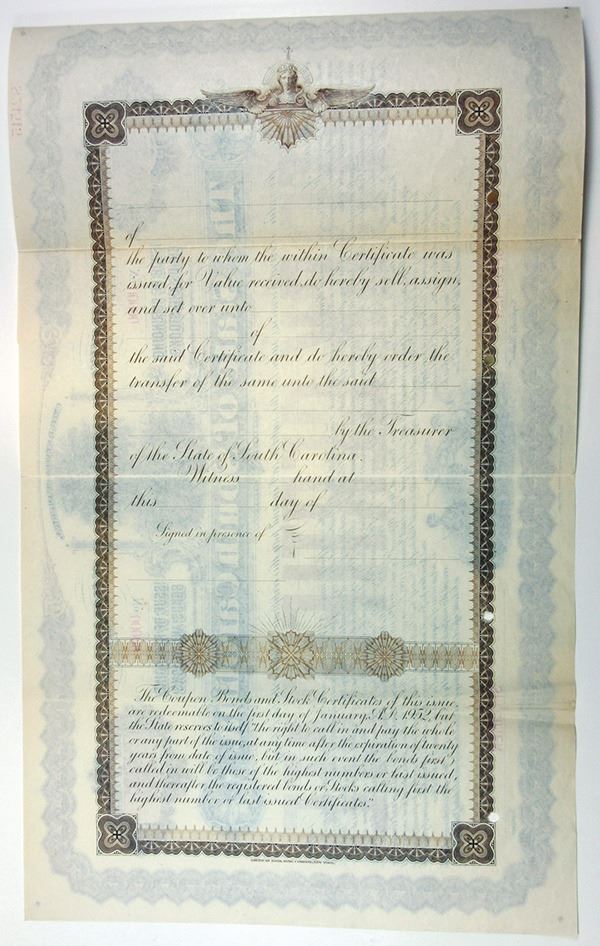 of
the party to whom the within Certificate was
issued, for Value received, do hereby sell, assign,
and set over unto
of
the said Certificate and do hereby order the
transfer of the same unto the said
by the Treasurer
of the State of South Carolina.
Witness hand at
this day of
Signed in presence of
"The Coupon Bonds and Stock Certificates of this issue,
are redeemable on the first day of January, A.D. 1952, but
the State reserves to itself the right to call in and pay the whole
or any part of the issue, at any time after the expiration of twenty
years from date of issue, but in such event the bonds first
called in will be those of the highest numbers or last issued,
and thereafter the registered bonds or Stocks calling first the
highest number or last issued Certificates."